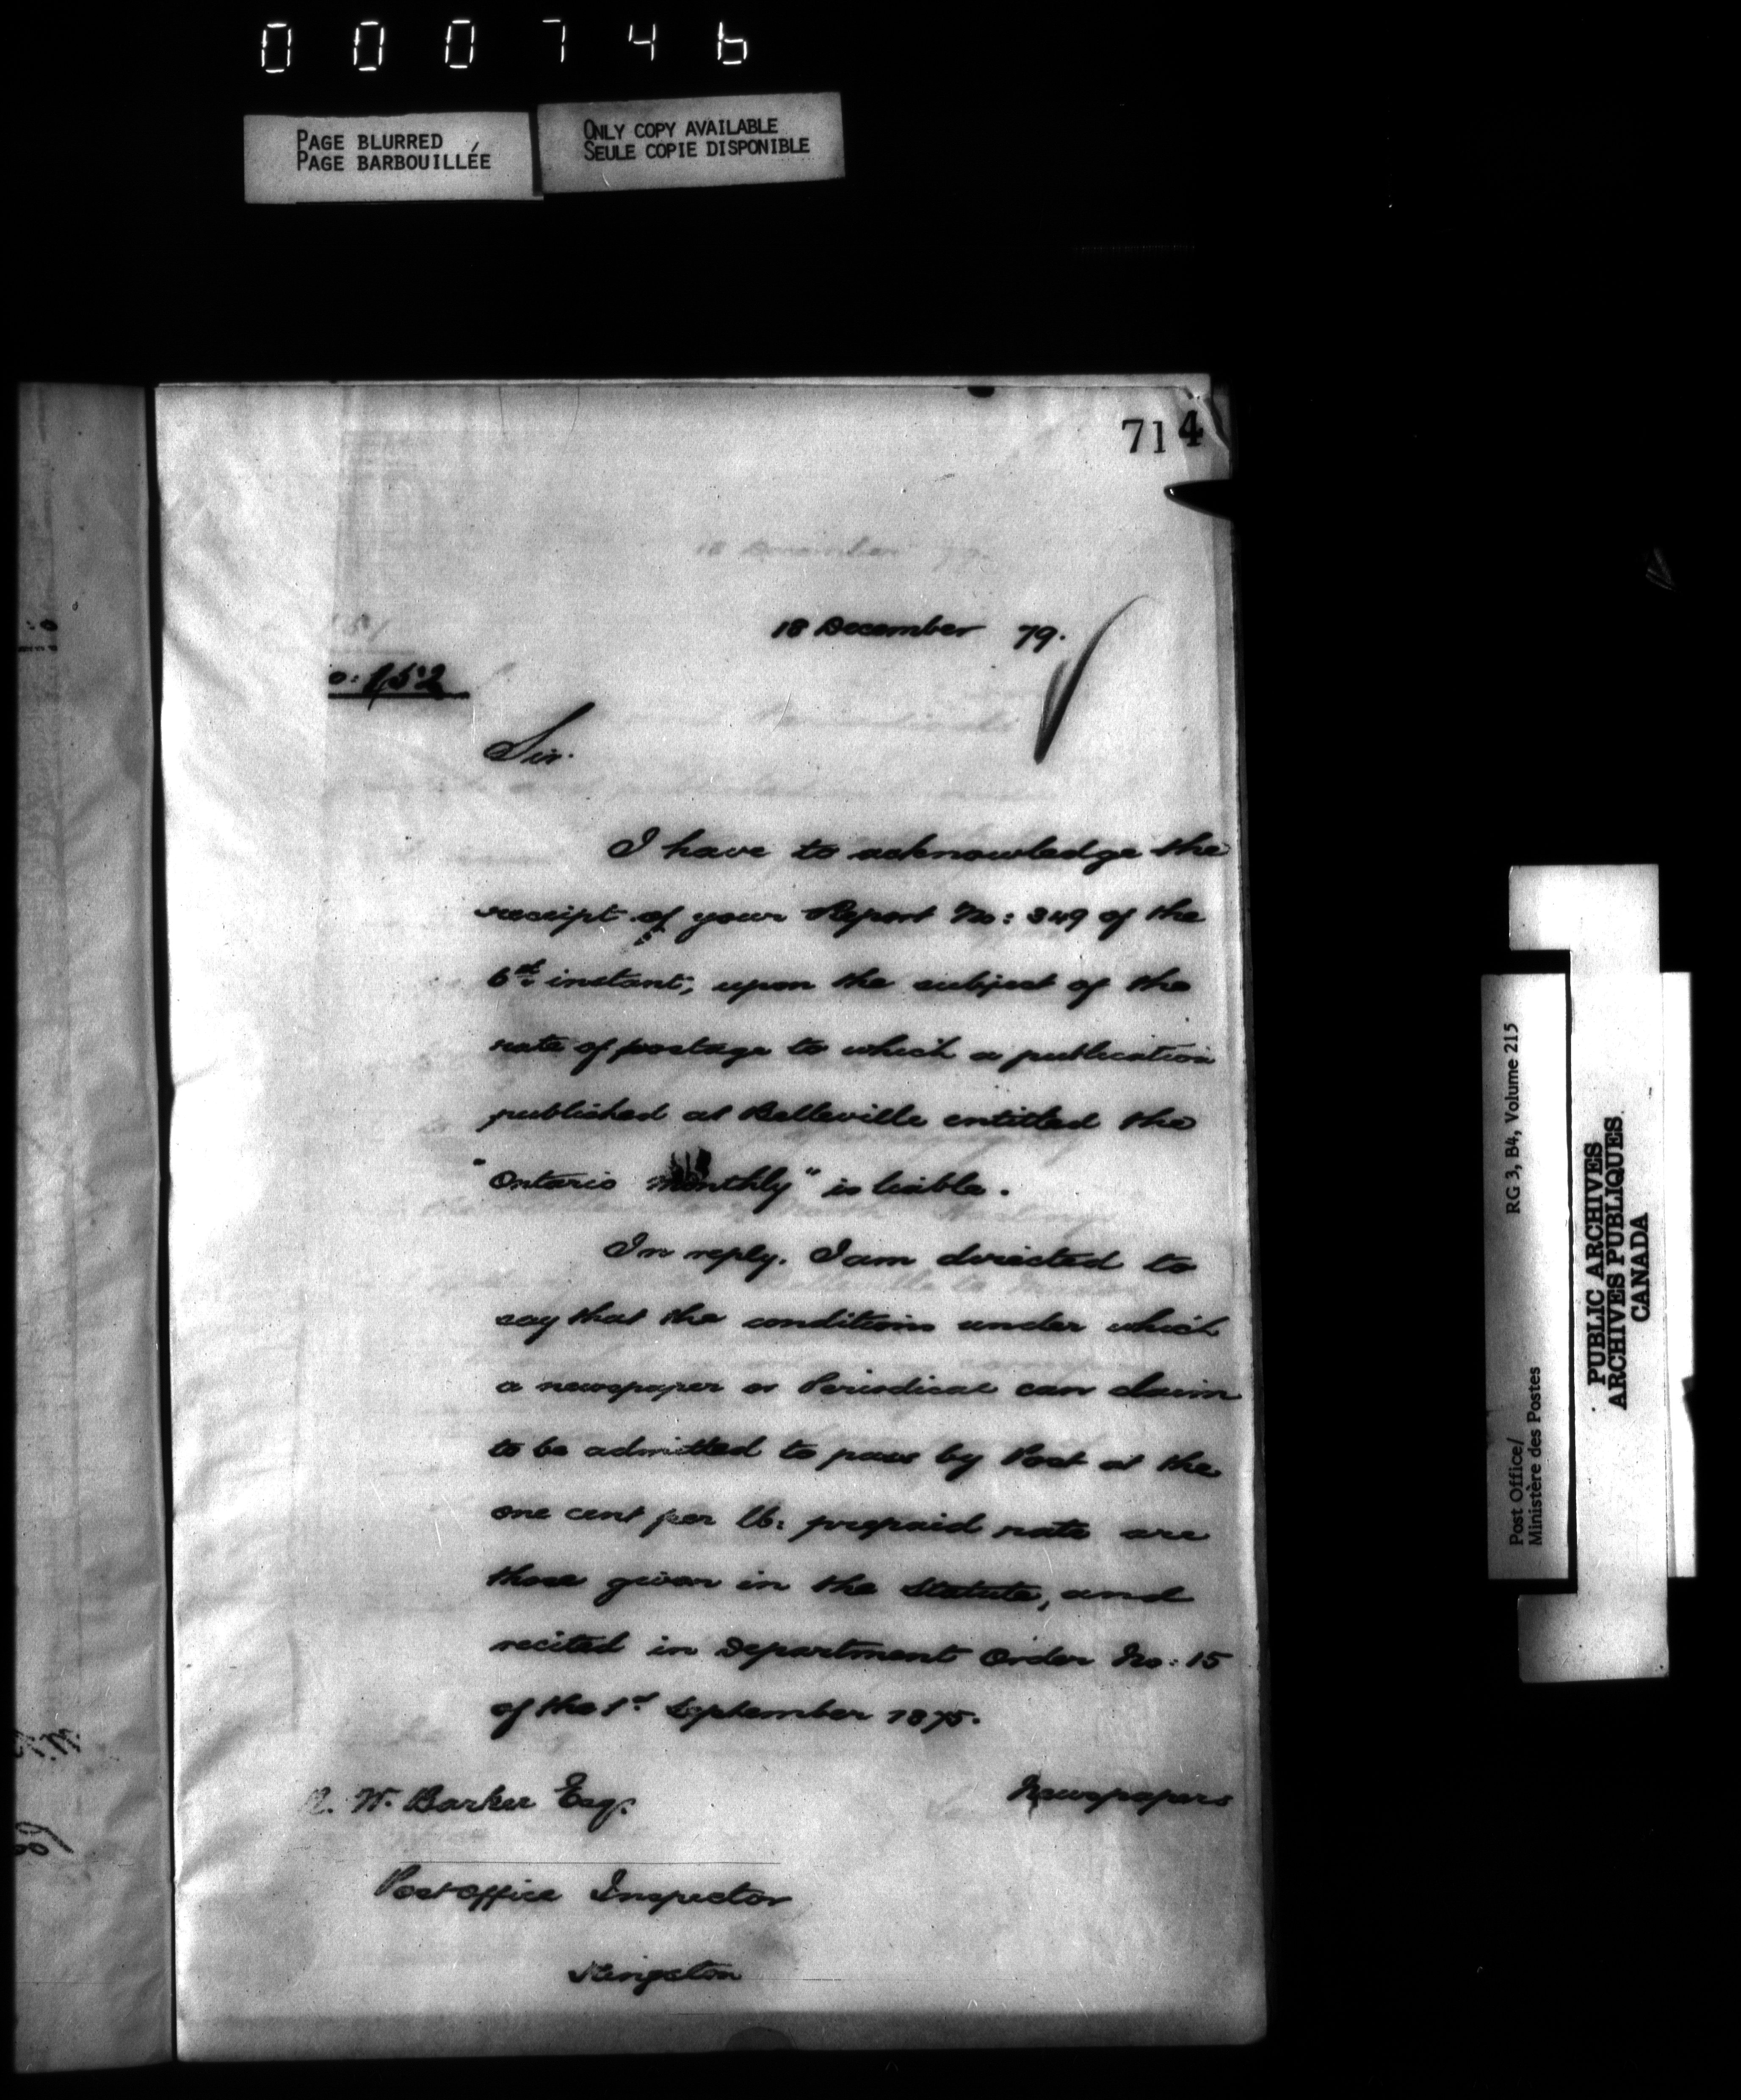 000746
PAGE BLURRED
PAGE BARBOUILLÉE
ONLY COPY AVAILABLE
SEULE COPIE DISPONIBLE
714
18 December 79.
o: 152
Sir.
I have to acknowledge the
receipt of your Report No: 349 of the
6th instant, upon the subject of the
rate of postage to which a publication
published at Belleville entitled the
"Ontario Monthly" is liable.
In reply. I am directed to
say that the conditions under which
a newspaper or Periodical can claim
to be admitted to pass by Post at the
one cent per lb: prepaid rate are
those given in the Statute, and
recited in Department Order No: 15
of the 1st September 1875.
Newspapers
R. W. Barker Esq.
Post Office Inspector
Kingston
RG 3, B4, Volume 215
Post Office/
Ministère des Postes
PUBLIC ARCHIVES
ARCHIVES PUBLIQUES
CANADA